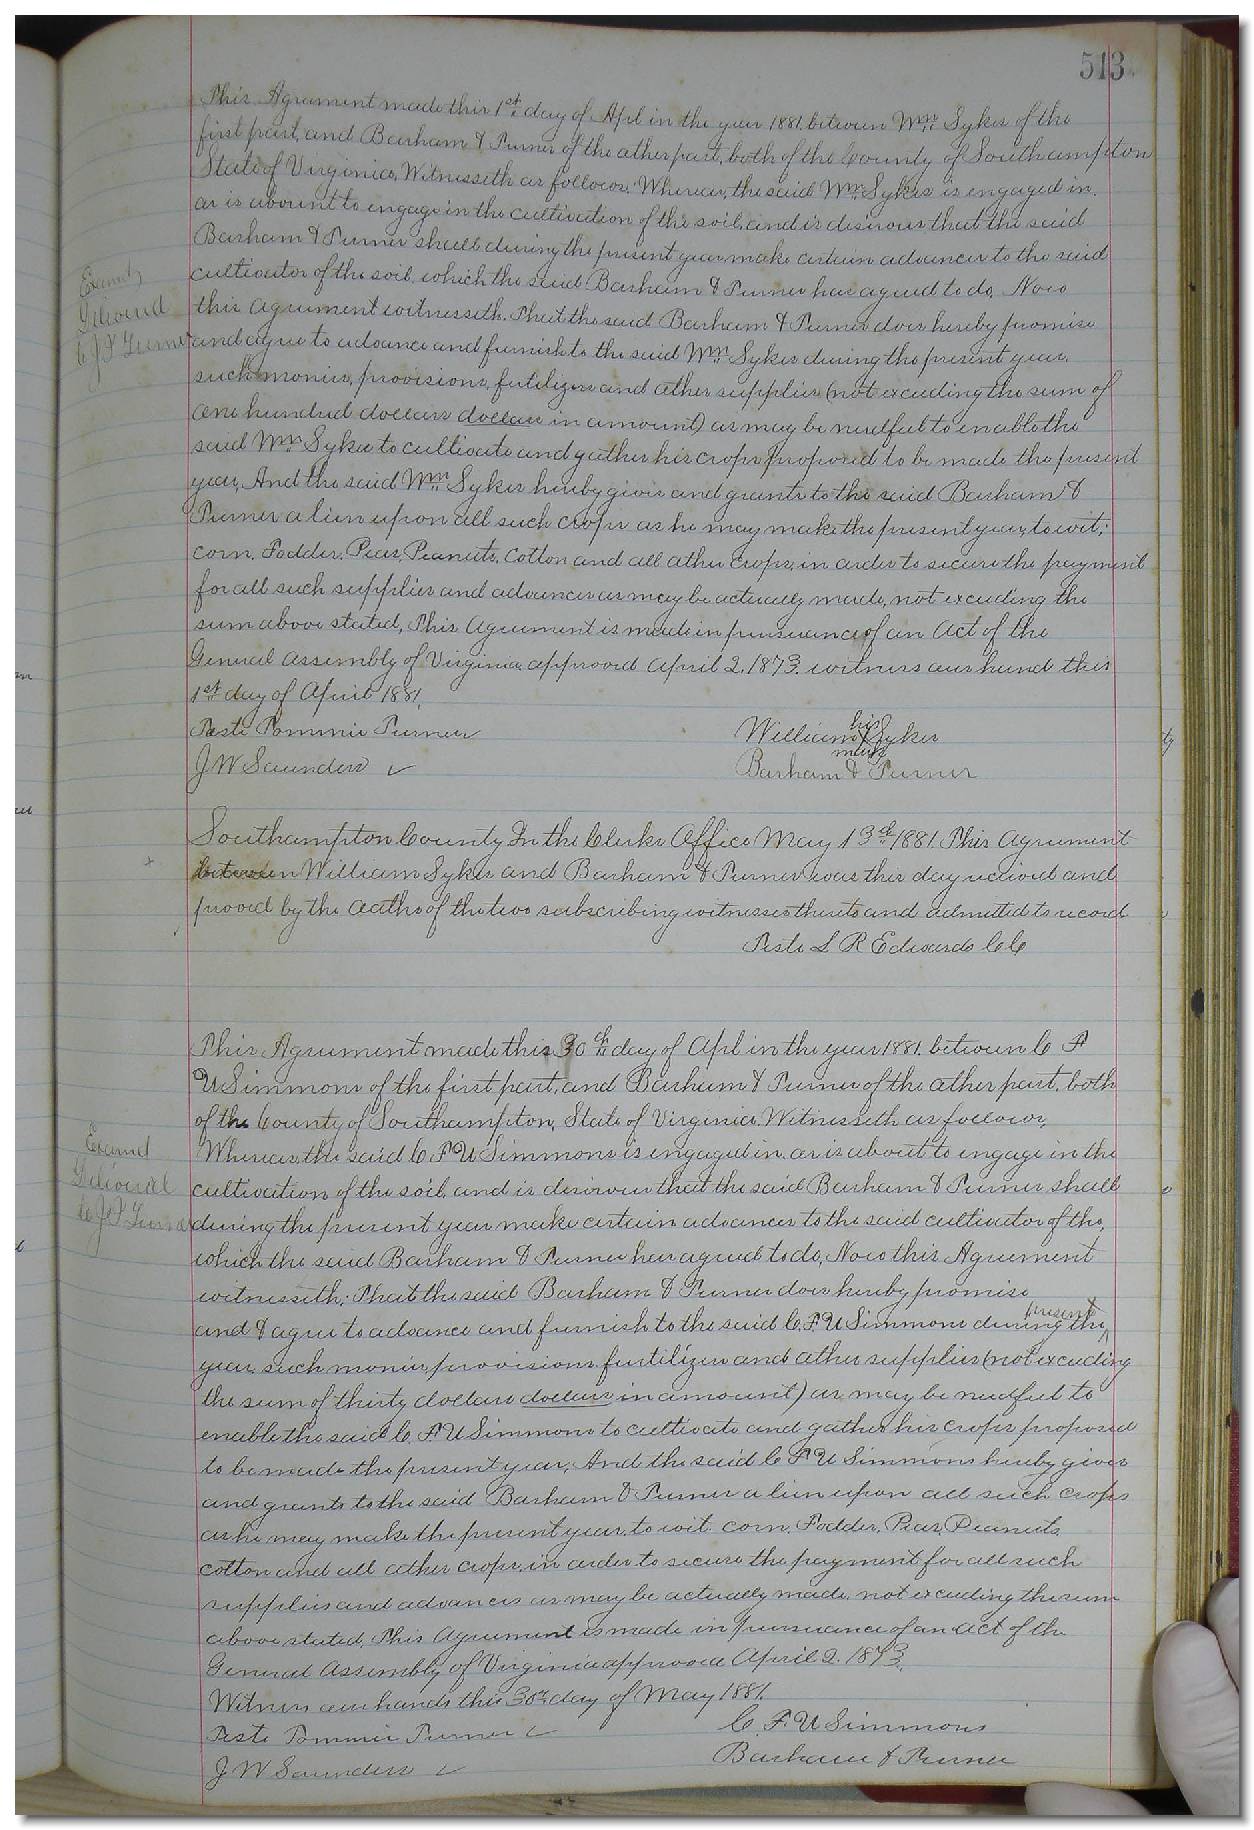 513
This Agreement made this 1st day of Apl in the year 1881, between Wm Sykes of the
first part, and Barham & Turner of the other part, both of the County of Southampton
State of Virginia, Witnesseth as follows: Whereas, the said Wm Sykes is engaged in
or is abount to engage in the cultivation of the soil, and is desirous that the said
Barham & Turner shall during the present year make certain advances to the said
cultivator of the soil, which the said Barham & Turner has agreed to do, Now
this agreement witnesseth, That the said Barham & Turner does hereby promise
and agree to advance and furnish to the said Wm Sykes during the present year,
such monies, provisions, fertilizers and other supplies (not exceeding the sum of
one hundred dollars dollars in amount) as may be needful to enable the
said Wm Sykes to cultivate and gather his crops proposed to be made the present
year, And the said Wm Sykes hereby gives and grants to the said Barham &
Turner a lien upon all such crops as he may make the present year, to wit;
corn, Fodder, Peas, Peanuts, Cotton and all other crops, in order to secure the payment
for all such supplies and advances as may be actually made, not exceeding the
sum above stated, This Agreement is made in pursuance of an Act of the
General Assembly of Virginia approved April 2, 1873. witness our hand this
1st day of April 1881,
Teste Tommie Turner
J W Saunders
William his Sykes
mark
Barham & Turner
Examd
Delivered
to J T Turner
Southampton County In the Clerks Office May 13th 1881. This Agreement
between William Sykes and Barham & Turner was this day received and
proved by the oaths of the two subscribing witnesses thereto and admitted to record
Teste L R Edwards C C
This Agreement made this 30th day of Apl in the year 1881, between C F
U Simmons of the first part, and Barham & Turner of the other part, both
of the County of Southampton, State of Virginia. Witnesseth as follows;
Whereas, the said C F U Simmons is engaged in or is about to engage in the
cultivation of the soil, and is desirous that the said Barham & Turner shall
during the present year make certain advances to the said cultivator of the,
which the said Barham & Turner has agreed to do, Now this Agreement
witnesseth; That the said Barham & Turner does hereby promise
and & agree to advance and furnish to the said C. F. U Simmons during the present
year such monies, provisions, fertilizers and other supplies (not exceeding
the sum of thirty dollars dollars in amount) as may be needful to
enable the said C. F. U Simmons to cultivate and gather his crops proposed
to be made the present year; And the said C F U Simmons hereby gives
and grants to the said Barham & Turner a lien upon all such crops
as he may make the present year, to wit corn, Fodder, Peas, Peanuts,
cotton and all other crops, in order to secure the payment for all such
supplies and advances as may be actually made, not exceeding the sum
above stated, This Agreement is made in pursuance of an act of the
General Assembly of Virginia approved April 2. 1873.
Witness our hands this 30th day of May 1881.
Teste Tommie Turner
J W Saunders
C. F. U Simmons
Barham & Turner
Examd
Delivered
to J T Turner